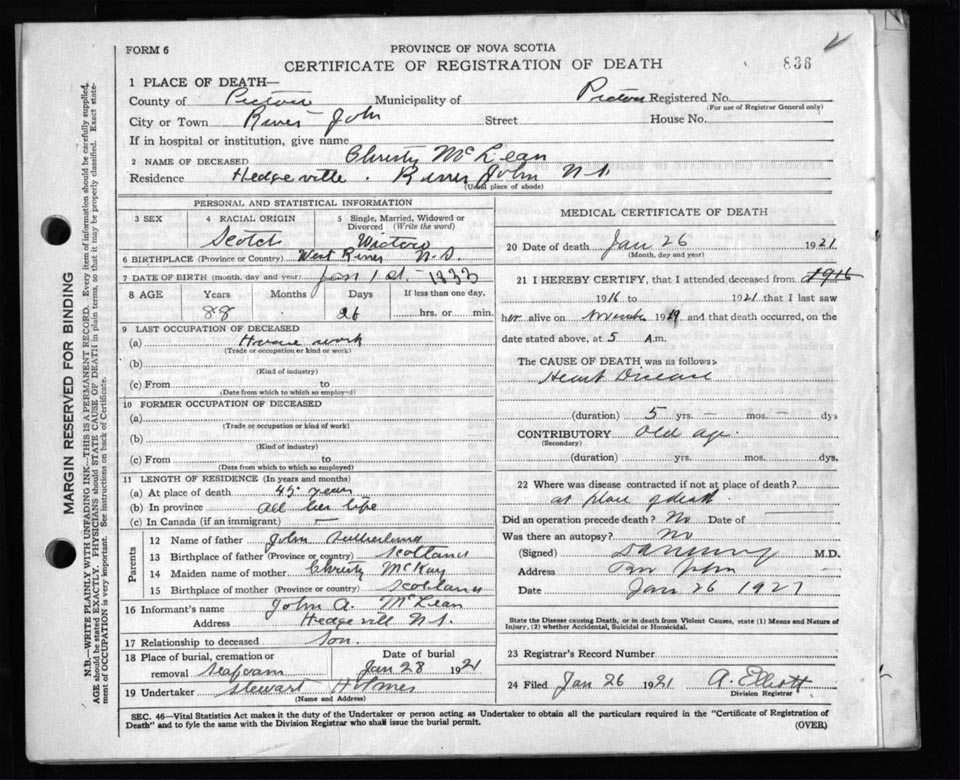 FORM 6
PROVINCE OF NOVA SCOTIA
CERTIFICATE OF REGISTRATION OF DEATH
836
1 PLACE OF DEATH—
County of Pictou Municipality of Pictou Registered No.
(For use of Registrar General only)
City or Town River John Street House No.
If in hospital or institution, give name
2 NAME OF DECEASED Christy McLean
Residence Hedgeville. River John N.S.
(Usual place of abode)
PERSONAL AND STATISTICAL INFORMATION
3 SEX 4 RACIAL ORIGIN 5 Single, Married, Widowed or Divorced (Write the word)
Scotch Widow
6 BIRTHPLACE (Province or Country) West River N.S.
7 DATE OF BIRTH (month, day and year) Jan 1st. - 1833
8 AGE Years Months Days If less than one day,
88 26 hrs. or min.
9 LAST OCCUPATION OF DECEASED
(a) House work
(Trade or occupation or kind or work)
(b)
(Kind of industry)
(c) From to
(Date from which to which so employed)
10 FORMER OCCUPATION OF DECEASED
(a)
(Trade or occupation or kind of work)
(b)
(Kind of industry)
(c) From to
(Date from which to which so employed)
11 LENGTH OF RESIDENCE (In years and months)
(a) At place of death 45 years
(b) In province all her life
(c) In Canada (if an immigrant) —
Parents
12 Name of father John Sutherland
13 Birthplace of father (Province or country) Scotland
14 Maiden name of mother Christy McKay
15 Birthplace of mother (Province or country) Scotland
16 Informant's name John A. McLean
Address Hedgevill N.S.
17 Relationship to deceased Son.
18 Place of burial, cremation or removal Seafoam Date of burial Jan 28 1921
19 Undertaker Stewart Holmes
(Name and Address)
MEDICAL CERTIFICATE OF DEATH
20 Date of death Jan 26 1921
(Month, day and year)
21 I HEREBY CERTIFY, that I attended deceased from 1916
1916 to 1921 that I last saw
her alive on 19 and that death occurred, on the
date stated above, at 5 A.m.
The CAUSE OF DEATH was as follows:
Heart Disease
(duration) 5 yrs. — mos. — dys
CONTRIBUTORY Old age.
(Secondary)
(duration) yrs. mos. dys.
22 Where was disease contracted if not at place of death?
at place of death.
Did an operation precede death? No Date of
Was there an autopsy? No
(Signed) M.D.
Address
Date Jan 26 1921
State the Disease causing Death, or in death from Violent Causes, state (1) Means and Nature of Injury, (2) whether Accidental, Suicidal or Homicidal.
23 Registrar's Record Number
24 Filed Jan 26 1921 A. Elliott
Division Registrar
SEC. 46—Vital Statistics Act makes it the duty of the Undertaker or person acting as Undertaker to obtain all the particulars required in the "Certificate of Registration of
Death" and to fyle the same with the Division Registrar who shall issue the burial permit. (OVER)
MARGIN RESERVED FOR BINDING
N.B.—WRITE PLAINLY WITH UNFADING INK—THIS IS A PERMANENT RECORD. Every item of information should be carefully supplied.
AGE should be stated EXACTLY. PHYSICIANS should STATE CAUSE OF DEATH in plain terms, so that it may be properly classified. Exact state-
ment of OCCUPATION is very important. See instructions on back of Certificate.